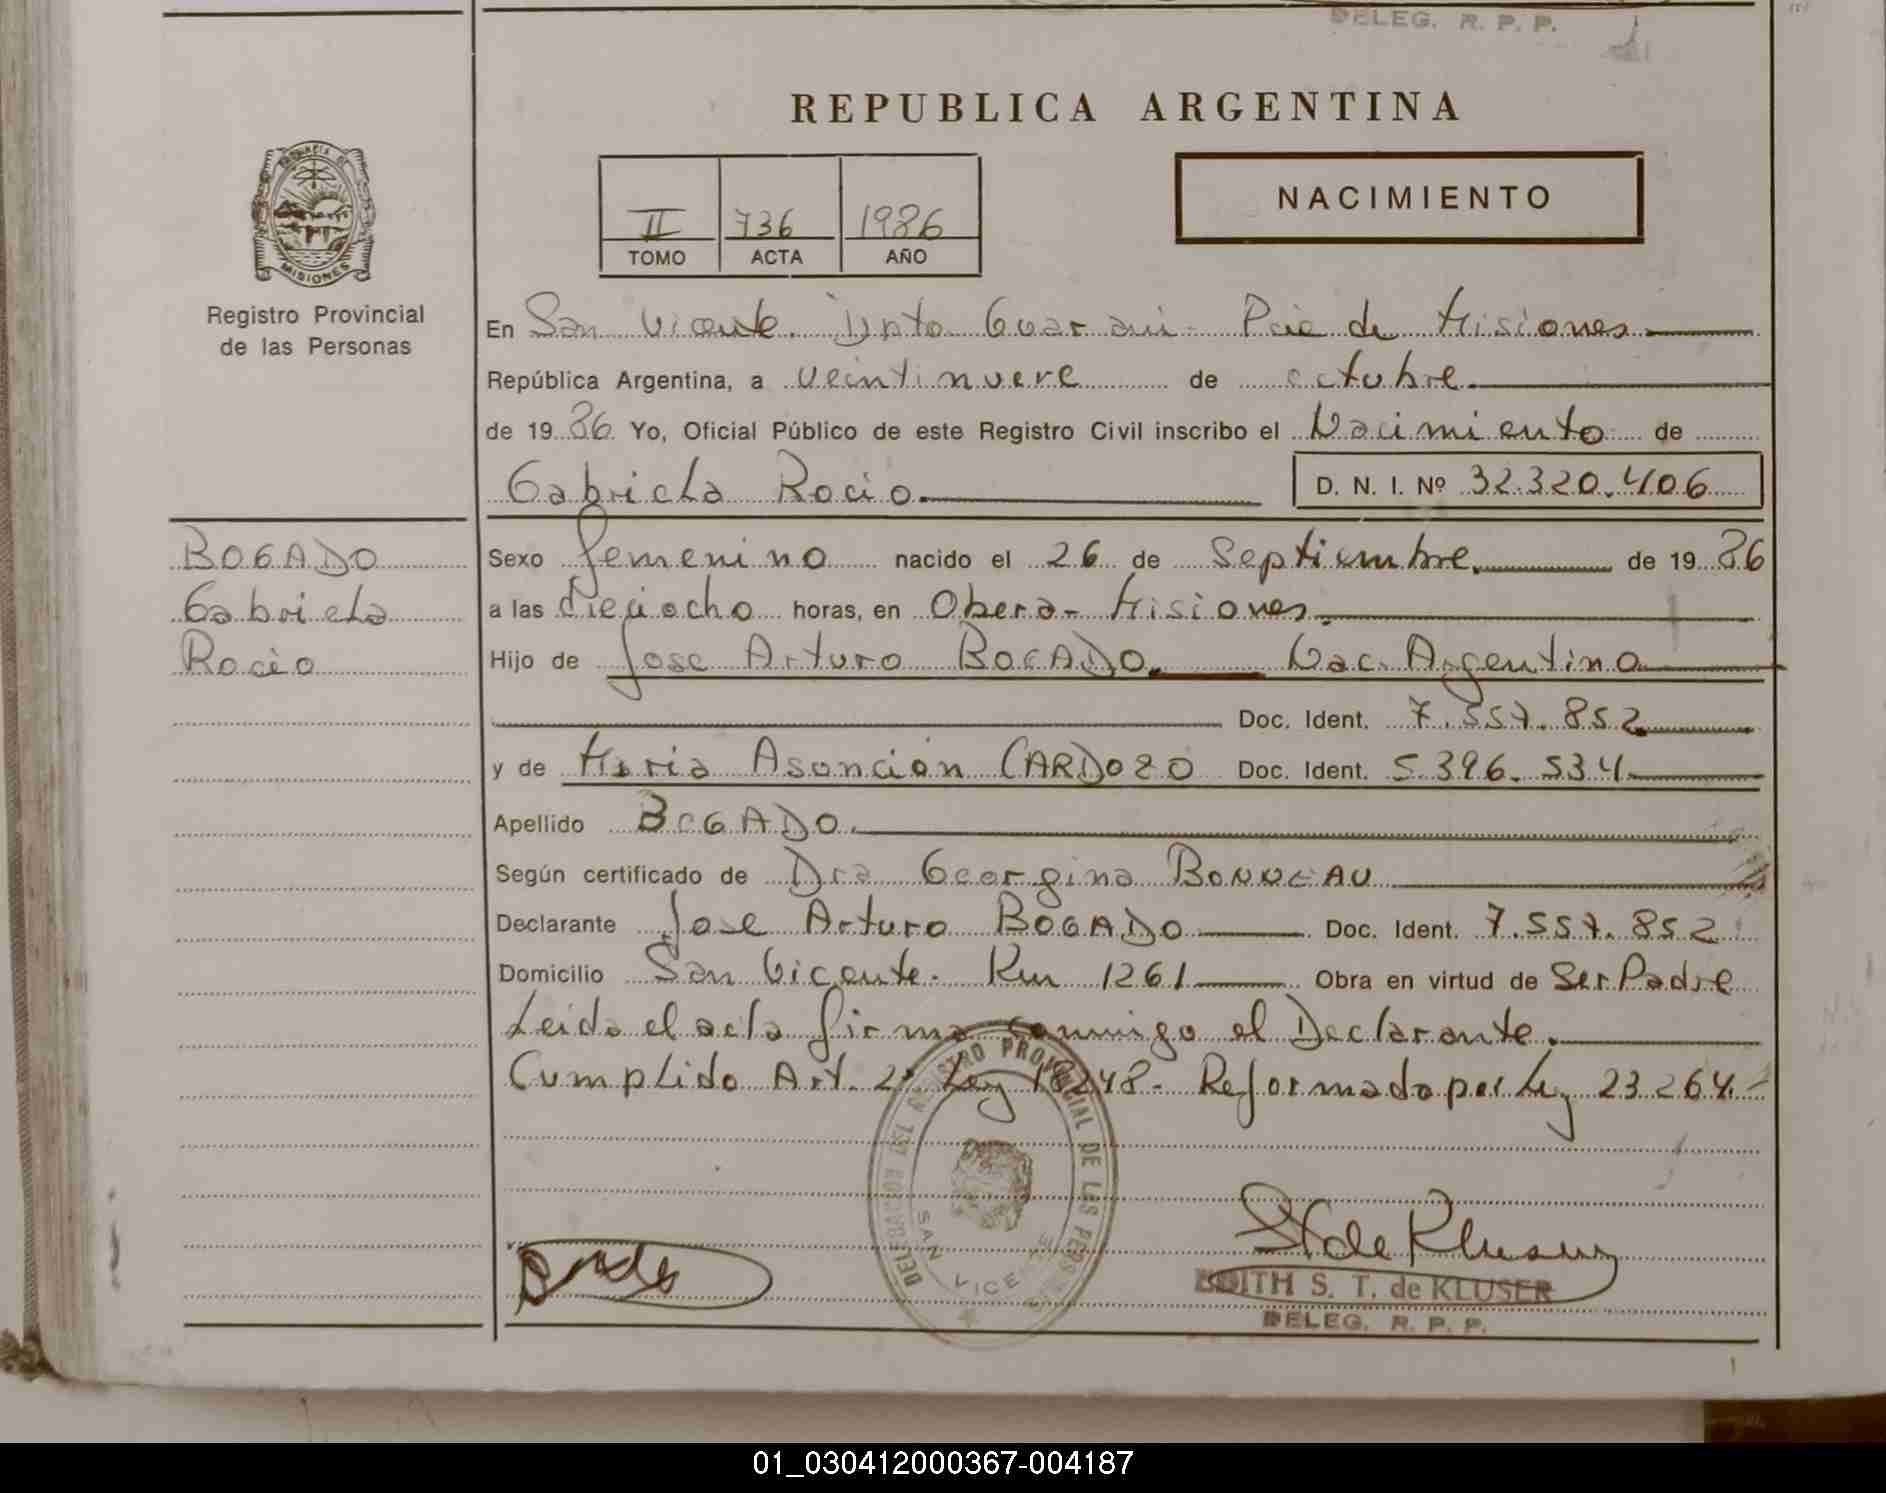 DELEG. R. P. P.
REPUBLICA ARGENTINA
PROVINCIA DE
MISIONES
Registro Provincial
de las Personas
II 736 1986
TOMO ACTA AÑO
NACIMIENTO
En San Vicente. Dpto Guarani - Pcia de Misiones
República Argentina, a veintinueve de octubre
de 1986 Yo, Oficial Público de este Registro Civil inscribo el Nacimiento de
Gabriela Rocio. D. N. I. Nº 32.320.406
BOGADO
Gabriela
Rocio
Sexo femenino nacido el 26 de Septiembre. de 1986
a las dieciocho horas, en Obera - Misiones.
Hijo de Jose Arturo BOGADO. Nac. Argentina
Doc. Ident. 7.557.852
y de Maria Asunción CARDOZO Doc. Ident. 5.396.534
Apellido BOGADO.
Según certificado de Dra Georgina BONNEAU
Declarante Jose Arturo BOGADO Doc. Ident. 7.557.852
Domicilio San Vicente. Km 1261 Obra en virtud de Ser Padre
Leida el acta firma conmigo el Declarante.
Cumplido Art. 2º Ley 18248 - Reformado por Ley 23264.-
REGISTRO PROVINCIAL DE LAS PERSONAS
SAN VICENTE
EDITH S. T. de KLUSER
DELEG. R. P. P.
01_030412000367-004187